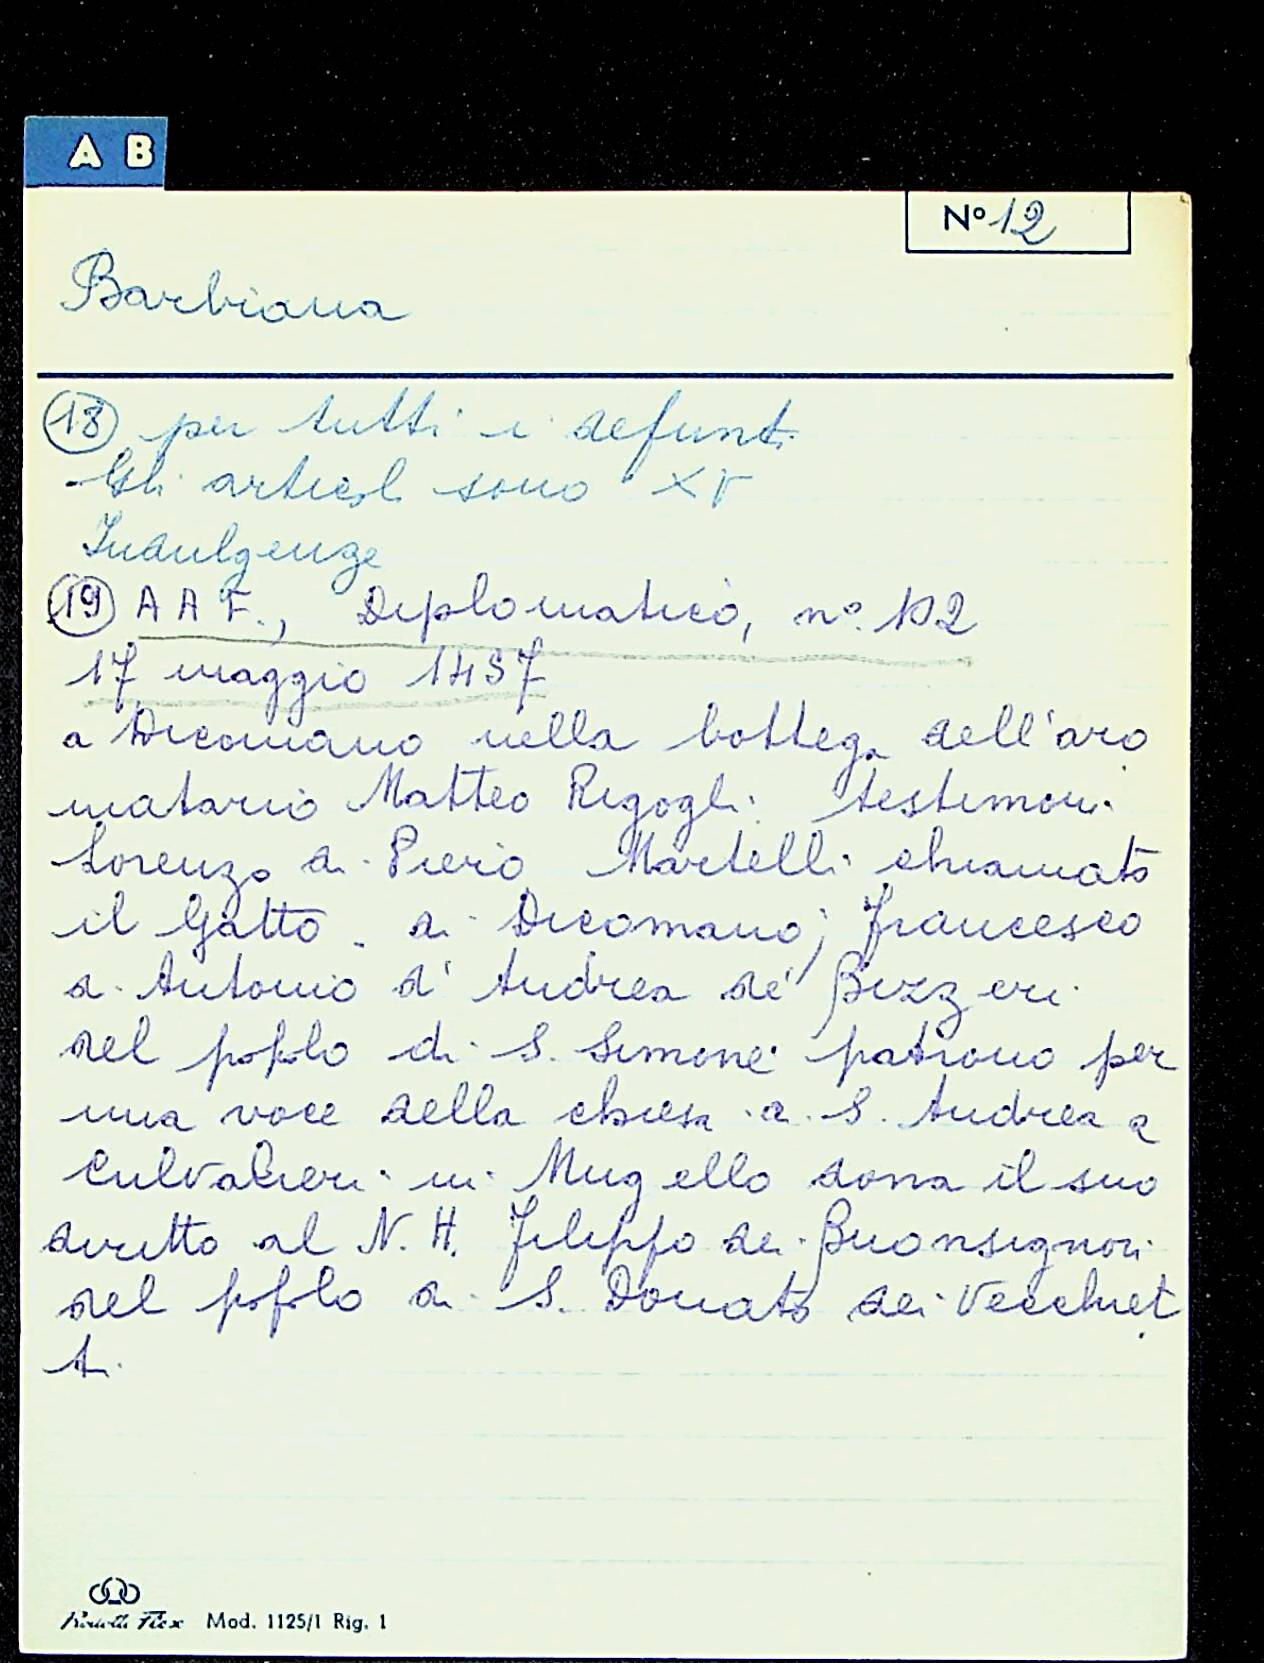 A B
N° 12
Barbiana
18 per tutti i defunti
- Gli articoli sono XV
Indulgenze
19 A A F., Diplomatico, n°. 102
17 maggio 1437
a Dicomano nella bottega dell'aro
matario Matteo Rigogli: testimoni
Lorenzo di Piero Martelli chiamato
il Gatto - di Dicomano; Francesco
di Antonio d'Andrea de' Bizzeri
del popolo di S. Simone patrono per
una voce della chiesa di S. Andrea a
Culvalieri in Mugello dona il suo
diritto al N. H. Filippo dei Buonsignori
del popolo di S. Donato dei Vecchiet
ti.
Mod. 1125/1 Rig. 1